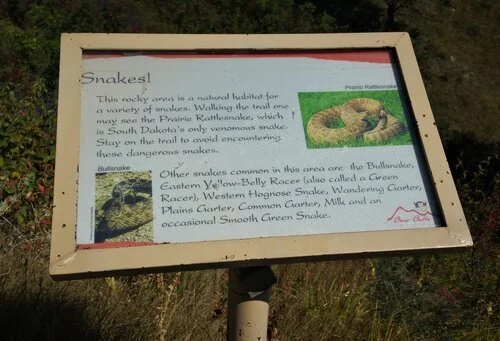 Snakes!
Prairie Rattlesnake
This rocky area is a natural habitat for
a variety of snakes. Walking the trail one
may see the Prairie Rattlesnake, which
is South Dakota's only venomous snake.
Stay on the trail to avoid encountering
these dangerous snakes.
Bullsnake
Other snakes common in this area are the Bullsnake,
Eastern Yellow-Belly Racer (also called a Green
Racer), Western Hognose Snake, Wandering Garter,
Plains Garter, Common Garter, Milk and an
occasional Smooth Green Snake.
Bear Butte